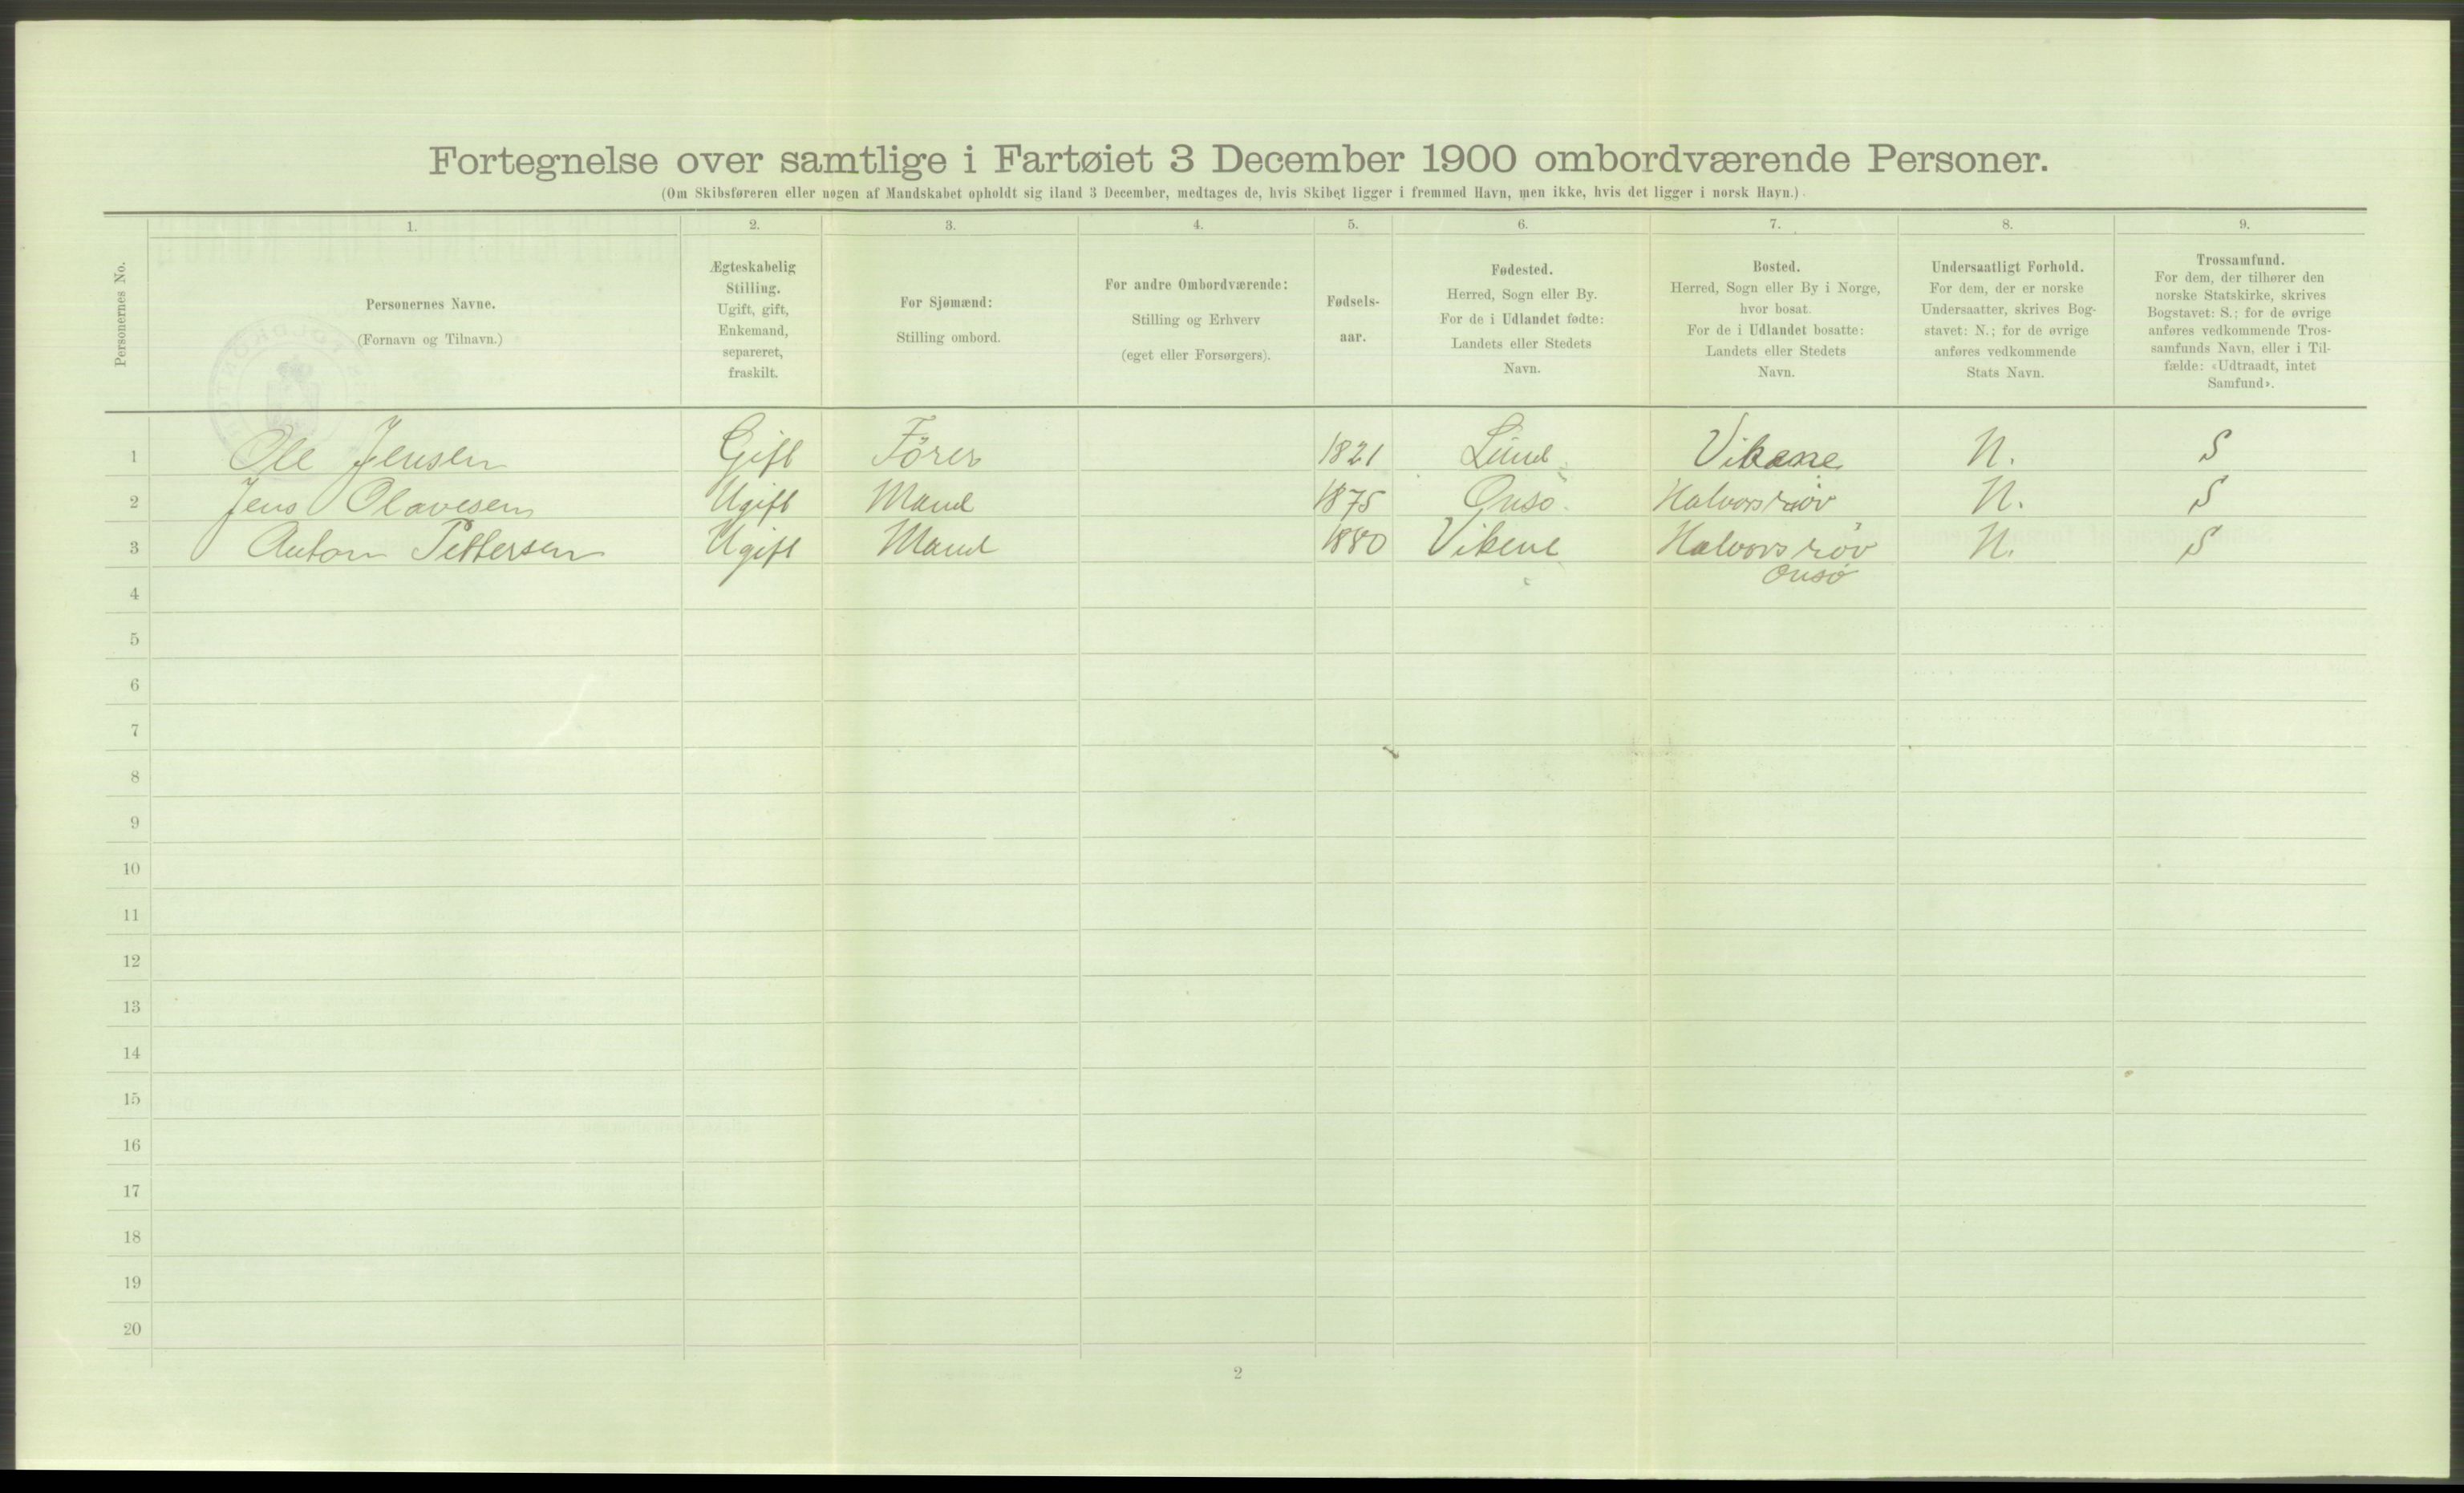 Fortegnelse over samtlige i Fartøiet 3 December 1900 ombordværende Personer.
(Om Skibsføreren eller nogen af Mandskabet opholdt sig iland 3 December, medtages de, hvis Skibet ligger i fremmed Havn, men ikke, hvis det ligger i norsk Havn.)
Personernes No.
1.
Personernes Navne.
(Fornavn og Tilnavn.)
2.
Ægteskabelig
Stilling.
Ugift, gift,
Enkemand,
separeret,
fraskilt.
3.
For Sjømænd:
Stilling ombord.
4.
For andre Ombordværende:
Stilling og Erhverv
(eget eller Forsørgers).
5.
Fødsels-
aar.
6.
Fødested.
Herred, Sogn eller By.
For de i Udlandet fødte:
Landets eller Stedets
Navn.
7.
Bosted.
Herred, Sogn eller By i Norge,
hvor bosat.
For de i Udlandet bosatte:
Landets eller Stedets
Navn.
8.
Undersaatligt Forhold.
For dem, der er norske
Undersaatter, skrives Bog-
stavet: N.; for de øvrige
anføres vedkommende
Stats Navn.
9.
Trossamfund.
For dem, der tilhører den
norske Statskirke, skrives
Bogstavet: S.; for de øvrige
anføres vedkommende Tros-
samfunds Navn, eller i Til-
fælde: «Udtraadt, intet
Samfund».
1 Ole Jensen Gift Förer 1821 Lund Vikene N. S
2 Jens Olavesen Ugift Mand 1875 Onsö Halvorsröv N. S
3 Anton Pettersen Ugift Mand 1880 Vikene Halvorsröv N. S
Onsö
4
5
6
7
8
9
10
11
12
13
14
15
16
17
18
19
20
2